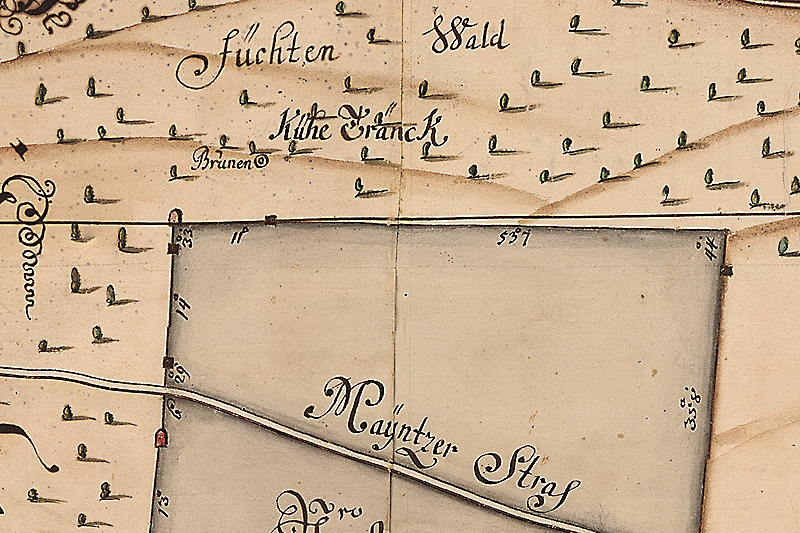 Füchten Wald
Kühe Tränck
Brünen
33
11
557
44
14
29
6
338
Mäyntzer Stras
13
Pro